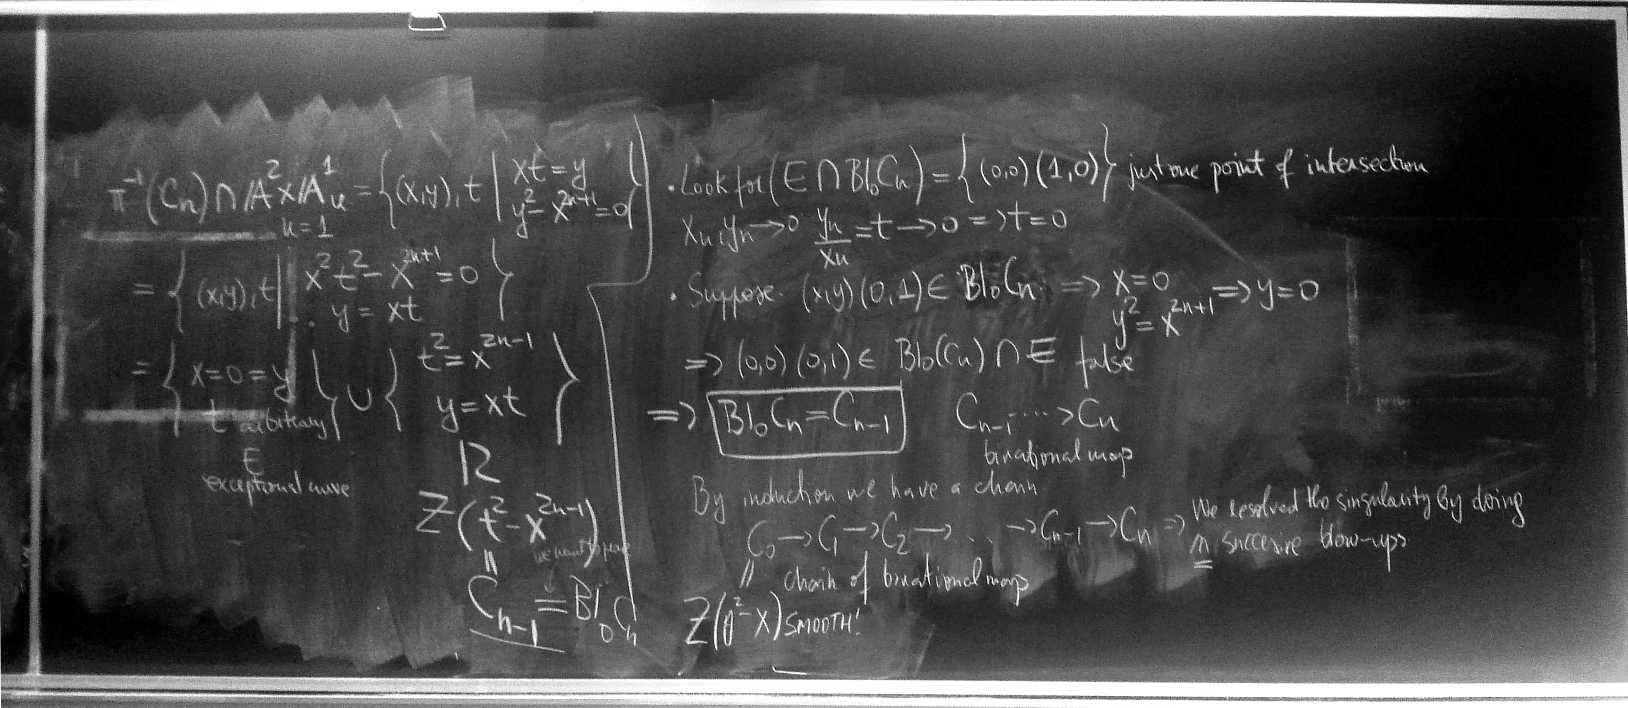 π⁻¹(Cn) ∩ A² x A¹u = { (x,y), t | xt = y
y² - x²ⁿ⁺¹ = 0 }
u = 1
= { (x,y), t | x²t² - x²ⁿ⁺¹ = 0
y = xt }
= { x = 0 = y
t arbitrary } ∪ { t² = x²ⁿ⁻¹
y = xt }
E
exceptional curve
Z(t² - x²ⁿ⁻¹)
we want to prove
Cn-1 = Bl₀Cn
• Look for (E ∩ Bl₀Cn) = { (0,0) (1,0) } just one point of intersection
xn, yn → 0 yn/xn = t → 0 => t = 0
• Suppose (x,y) (0,1) ∈ Bl₀Cn => x = 0
y² = x²ⁿ⁺¹ => y = 0
=> (0,0) (0,1) ∈ Bl₀(Cn) ∩ E false
=> Bl₀Cn = Cn-1 Cn-1 ····> Cn
birational map
By induction we have a chain
C₀ → C₁ → C₂ → ... → Cn-1 → Cn => We resolved the singularity by doing
n succesive blow-ups
chain of birational maps
Z(y² - x) SMOOTH!